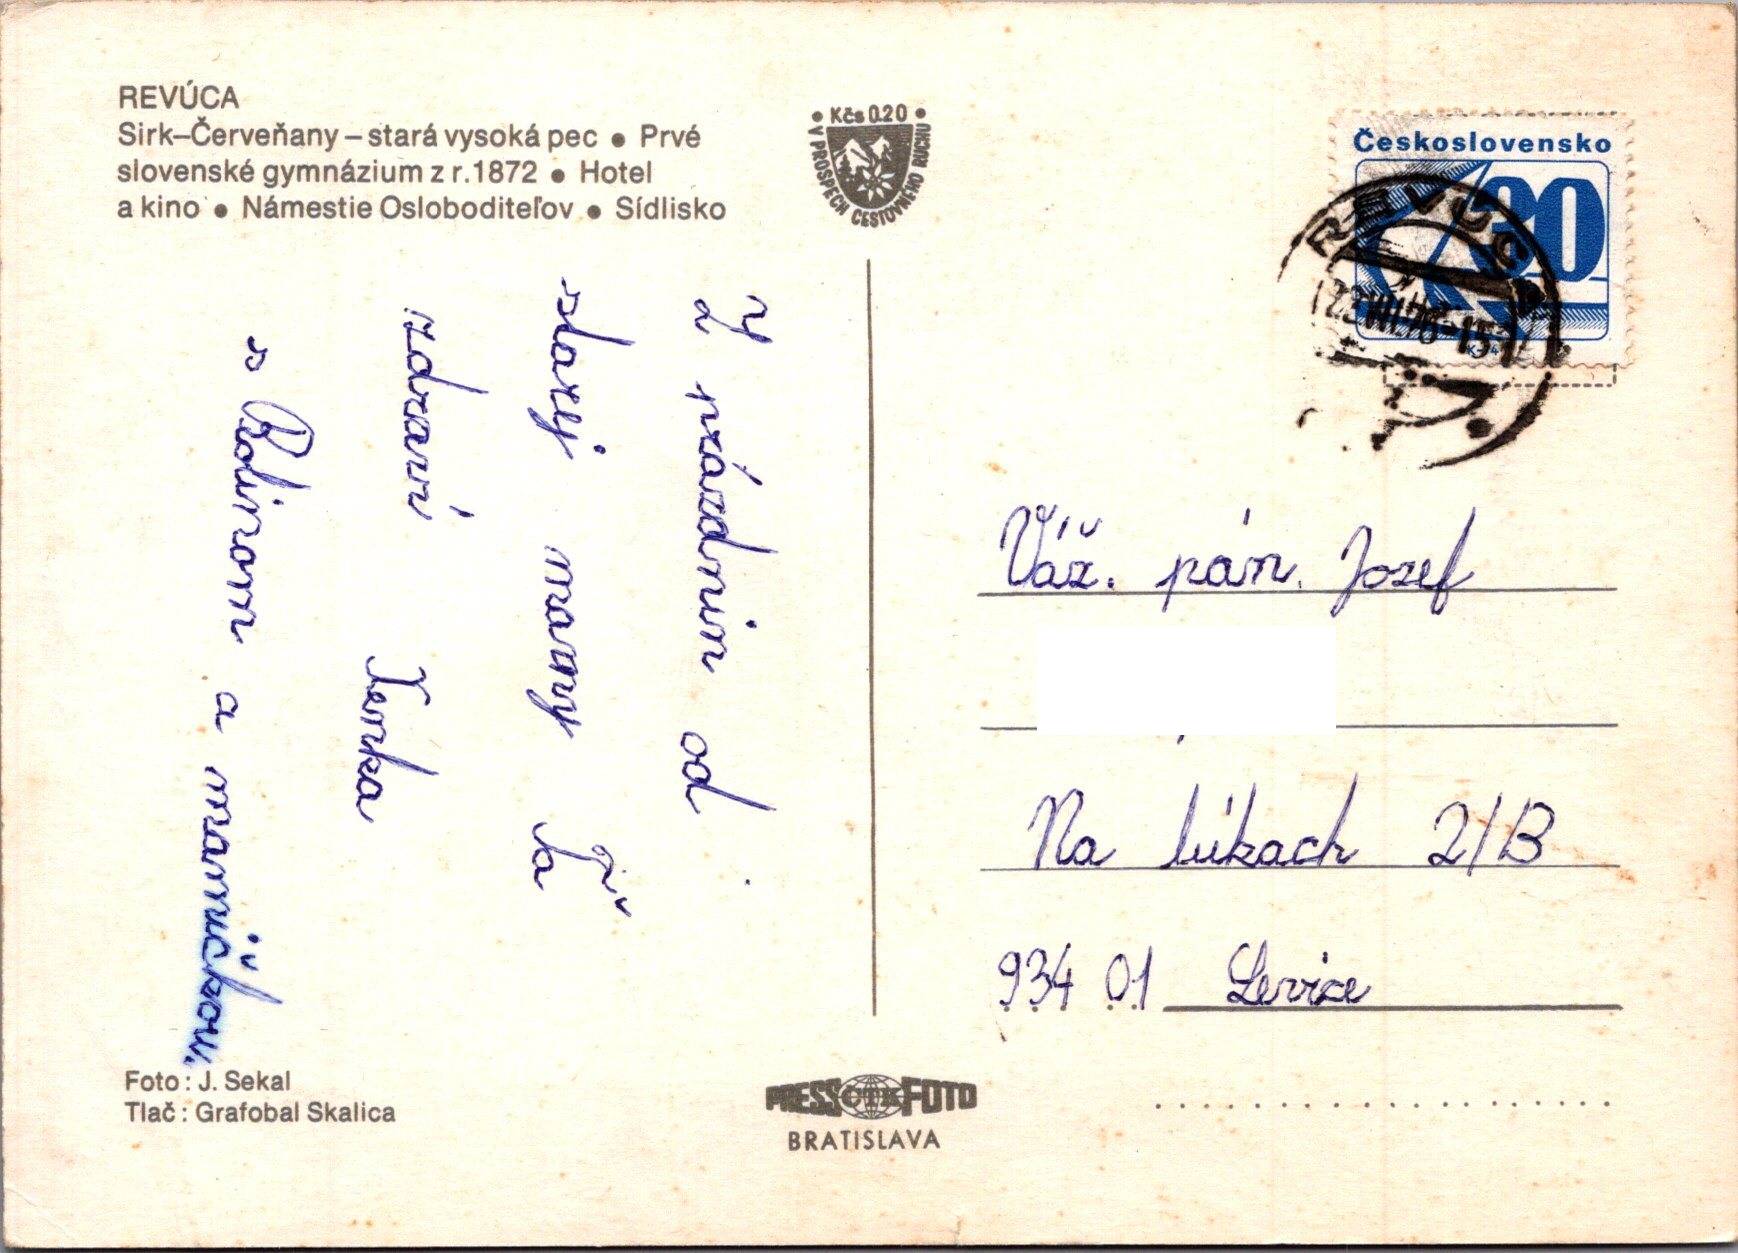 REVÚCA
Sirk–Červeňany – stará vysoká pec • Prvé
slovenské gymnázium z r. 1872 • Hotel
a kino • Námestie Osloboditeľov • Sídlisko
• Kčs 0.20 •
V PROSPECH CESTOVNÉHO RUCHU
Československo
30
REVÚCA
23.VIII.78-15
Z prázdnin od
starej mamy Ťa
zdraví
Xenka
s Palinom a mamičkou.
Váž. pán. Jozef
Na lúkach 2/B
934 01 Levice
Foto: J. Sekal
Tlač: Grafobal Skalica
PRESS ČTK FOTO
BRATISLAVA